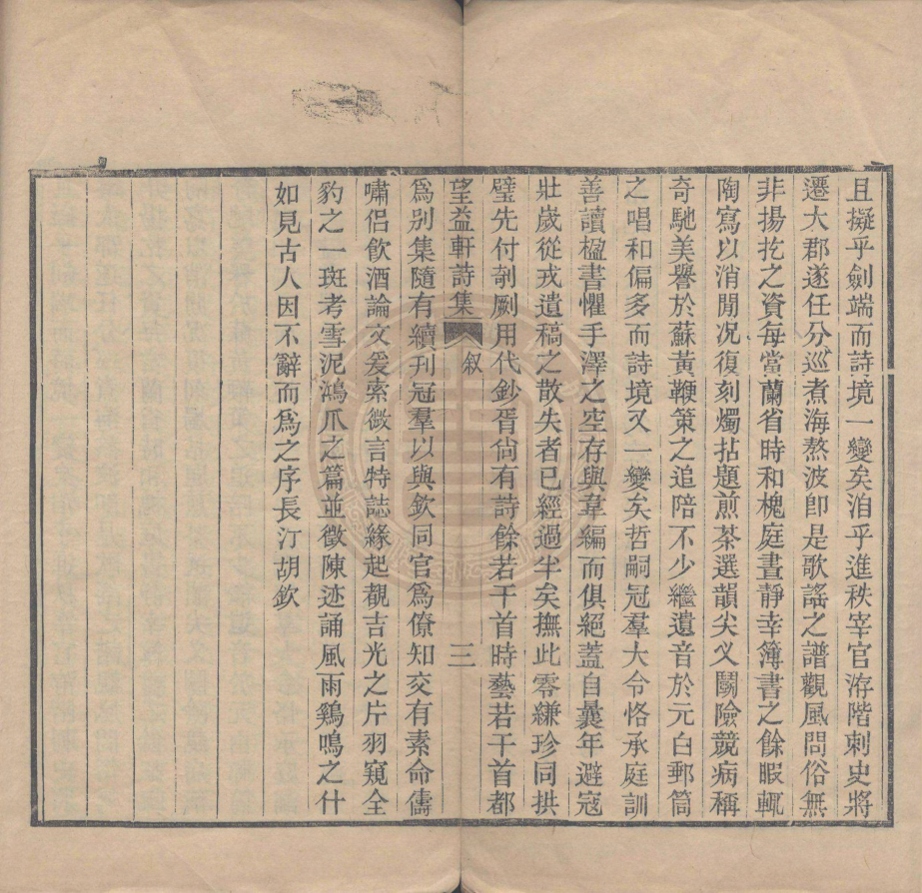 且擬乎劍端而詩境一變矣洎乎進秩宰官洊階刺史將
遷大郡遂任分巡煮海熬波卽是歌謠之譜觀風問俗無
非揚扢之資每當蘭省時和槐庭晝靜幸簿書之餘暇輒
陶寫以消閒况復刻燭拈題煎茶選韻尖义鬭險競病稱
奇馳美譽於蘇黃鞭策之追陪不少繼遺音於元白郵筒
之唱和偏多而詩境又一變矣哲嗣冠羣大令恪承庭訓
善讀楹書懼手澤之空存與韋編而俱絕蓋自曩年避寇
壯歲從戎遺稿之散失者已經過半矣撫此零縑珍同拱
璧先付剞劂用代鈔胥尙有詩餘若干首時藝若干首都
望益軒詩集 叙 三
爲別集隨有續刊冠羣以與欽同官爲僚知交有素命儔
嘯侶飮酒論文爰索微言特誌緣起覩吉光之片羽窺全
豹之一斑考雪泥鴻爪之篇並徵陳迹誦風雨鷄鳴之什
如見古人因不辭而爲之序長汀胡欽